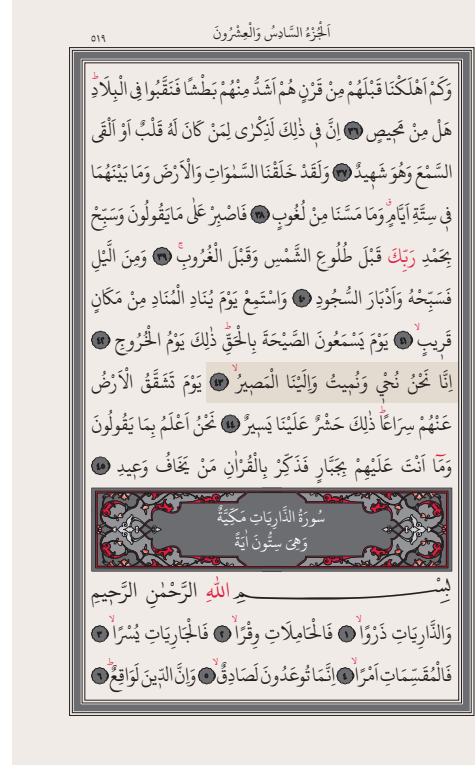 اَلْجُزْءُ السَّادِسُ وَالْعِشْرُونَ
٥١٩
وَكَمْ اَهْلَكْنَا قَبْلَهُمْ مِنْ قَرْنٍ هُمْ اَشَدُّ مِنْهُمْ بَطْشًا فَنَقَّبُوا فِى الْبِلَادِۜ
هَلْ مِنْ مَحٖيصٍ ﴿٣٦﴾ اِنَّ فٖى ذٰلِكَ لَذِكْرٰى لِمَنْ كَانَ لَهُ قَلْبٌ اَوْ اَلْقَى
السَّمْعَ وَهُوَ شَهٖيدٌ ﴿٣٧﴾ وَلَقَدْ خَلَقْنَا السَّمٰوَاتِ وَالْاَرْضَ وَمَا بَيْنَهُمَا
فٖى سِتَّةِ اَيَّامٍۗ وَمَا مَسَّنَا مِنْ لُغُوبٍ ﴿٣٨﴾ فَاصْبِرْ عَلٰى مَا يَقُولُونَ وَسَبِّحْ
بِحَمْدِ رَبِّكَ قَبْلَ طُلُوعِ الشَّمْسِ وَقَبْلَ الْغُرُوبِۚ ﴿٣٩﴾ وَمِنَ الَّيْلِ
فَسَبِّحْهُ وَاَدْبَارَ السُّجُودِ ﴿٤٠﴾ وَاسْتَمِعْ يَوْمَ يُنَادِ الْمُنَادِ مِنْ مَكَانٍ
قَرٖيبٍۙ ﴿٤١﴾ يَوْمَ يَسْمَعُونَ الصَّيْحَةَ بِالْحَقِّۜ ذٰلِكَ يَوْمُ الْخُرُوجِ ﴿٤٢﴾
اِنَّا نَحْنُ نُحْيٖ وَنُمٖيتُ وَاِلَيْنَا الْمَصٖيرُۙ ﴿٤٣﴾ يَوْمَ تَشَقَّقُ الْاَرْضُ
عَنْهُمْ سِرَاعًاۜ ذٰلِكَ حَشْرٌ عَلَيْنَا يَسٖيرٌ ﴿٤٤﴾ نَحْنُ اَعْلَمُ بِمَا يَقُولُونَ
وَمَٓا اَنْتَ عَلَيْهِمْ بِجَبَّارٍ فَذَكِّرْ بِالْقُرْاٰنِ مَنْ يَخَافُ وَعٖيدِ ﴿٤٥﴾
سُورَةُ الذَّارِيَاتِ مَكِّيَّةٌ
وَهِىَ سِتُّونَ اٰيَةً
بِسْمِ اللّٰهِ الرَّحْمٰنِ الرَّحٖيمِ
وَالذَّارِيَاتِ ذَرْوًاۙ ﴿١﴾ فَالْحَامِلَاتِ وِقْرًاۙ ﴿٢﴾ فَالْجَارِيَاتِ يُسْرًاۙ ﴿٣﴾
فَالْمُقَسِّمَاتِ اَمْرًاۙ ﴿٤﴾ اِنَّمَا تُوعَدُونَ لَصَادِقٌۙ ﴿٥﴾ وَاِنَّ الدّٖينَ لَوَاقِعٌۜ ﴿٦﴾